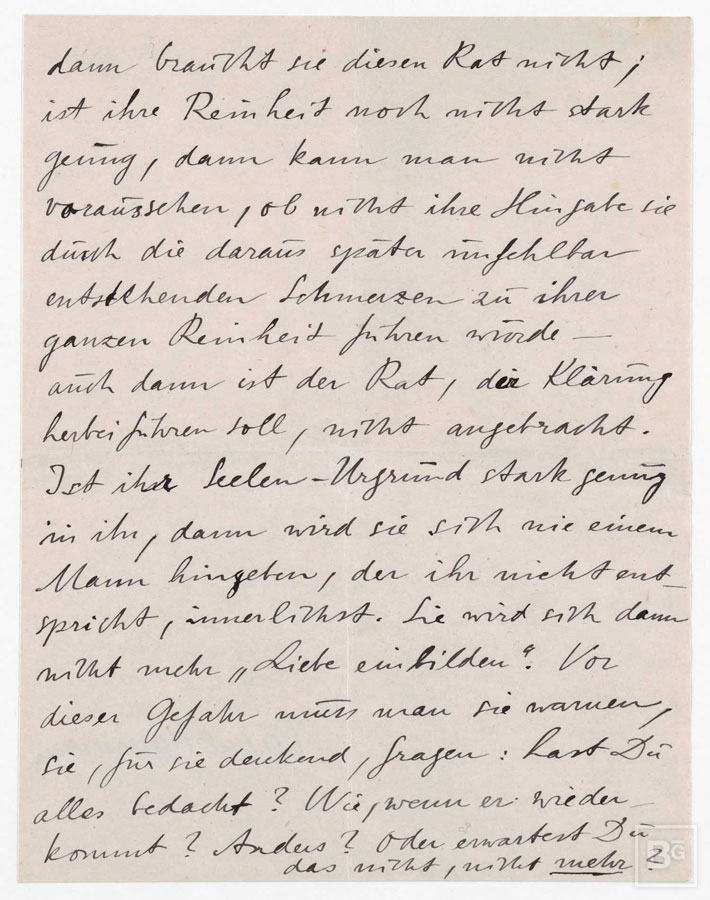 dann braucht sie diesen Rat nicht;
ist ihre Reinheit noch nicht stark
genug, dann kann man nicht
voraussehen, ob nicht ihre Hingabe sie
durch die daraus später unfehlbar
entstehenden Schmerzen zu ihrer
ganzen Reinheit führen würde –
auch dann ist der Rat, der Klärung
herbeiführen soll, nicht angebracht.
Ist ihr Seelen-Urgrund stark genug
in ihr, dann wird sie sich nie einem
Mann hingeben, der ihr nicht ent-
spricht, innerlichst. Sie wird sich dann
nicht mehr „Liebe einbilden“. Vor
dieser Gefahr muss man sie warnen,
sie, für sie denkend, fragen: hast Du
alles bedacht? Wie, wenn er wieder-
kommt? Anders? Oder erwartest Du
das nicht, nicht mehr?
BG